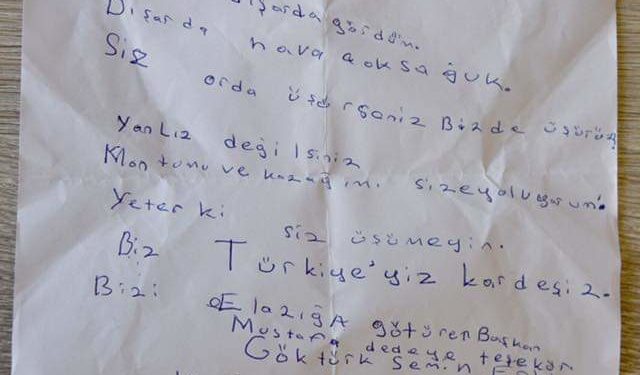 Dışarda gördüm.
Dışarda hava çoksağuk.
Siz orda üşürseniz Bizde üşürüz
YanLız değilsiniz
Montumu ve kazağımı sizeyoluyorum.
Yeter ki siz üşümeyin.
Biz Türkiye'yiz kardeşiz.
Bizi
ELazığA götüren Başkan
Mustafa dedeye teşekür
Göktürk Semin